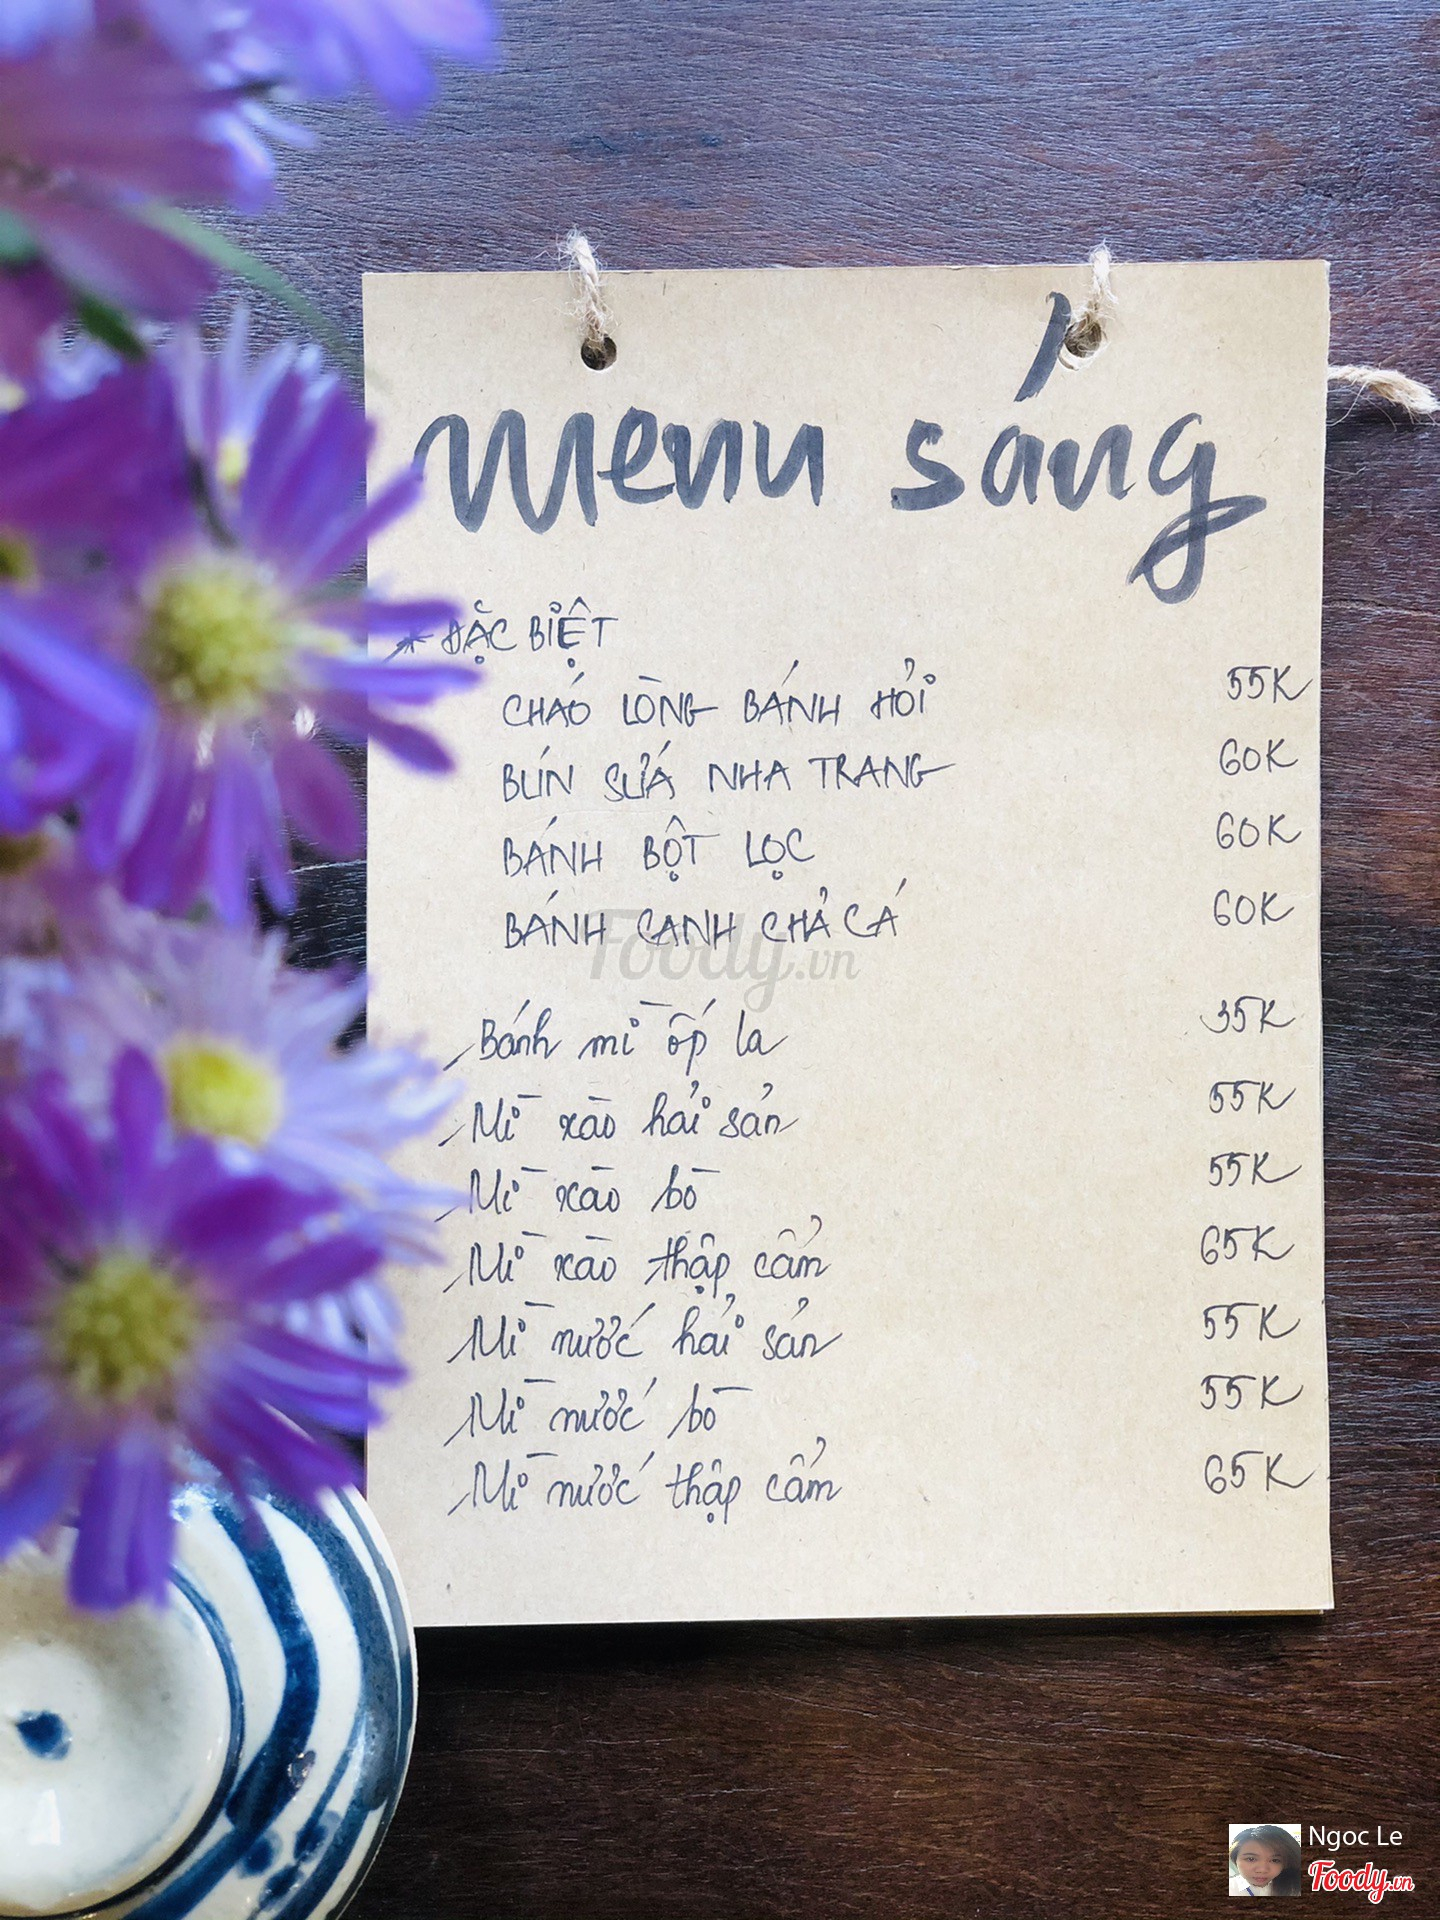 Menu sáng
* ĐẶC BIỆT
CHÁO LÒNG BÁNH HỎI 55K
BÚN SỨA NHA TRANG 60K
BÁNH BỘT LỌC 60K
BÁNH CANH CHẢ CÁ 60K
Foody.vn
Bánh mì ốp la 35K
Mì xào hải sản 55K
Mì xào bò 55K
Mì xào thập cẩm 65K
Mì nước hải sản 55K
Mì nước bò 55K
Mì nước thập cẩm 65K
Ngoc Le
Foody.vn